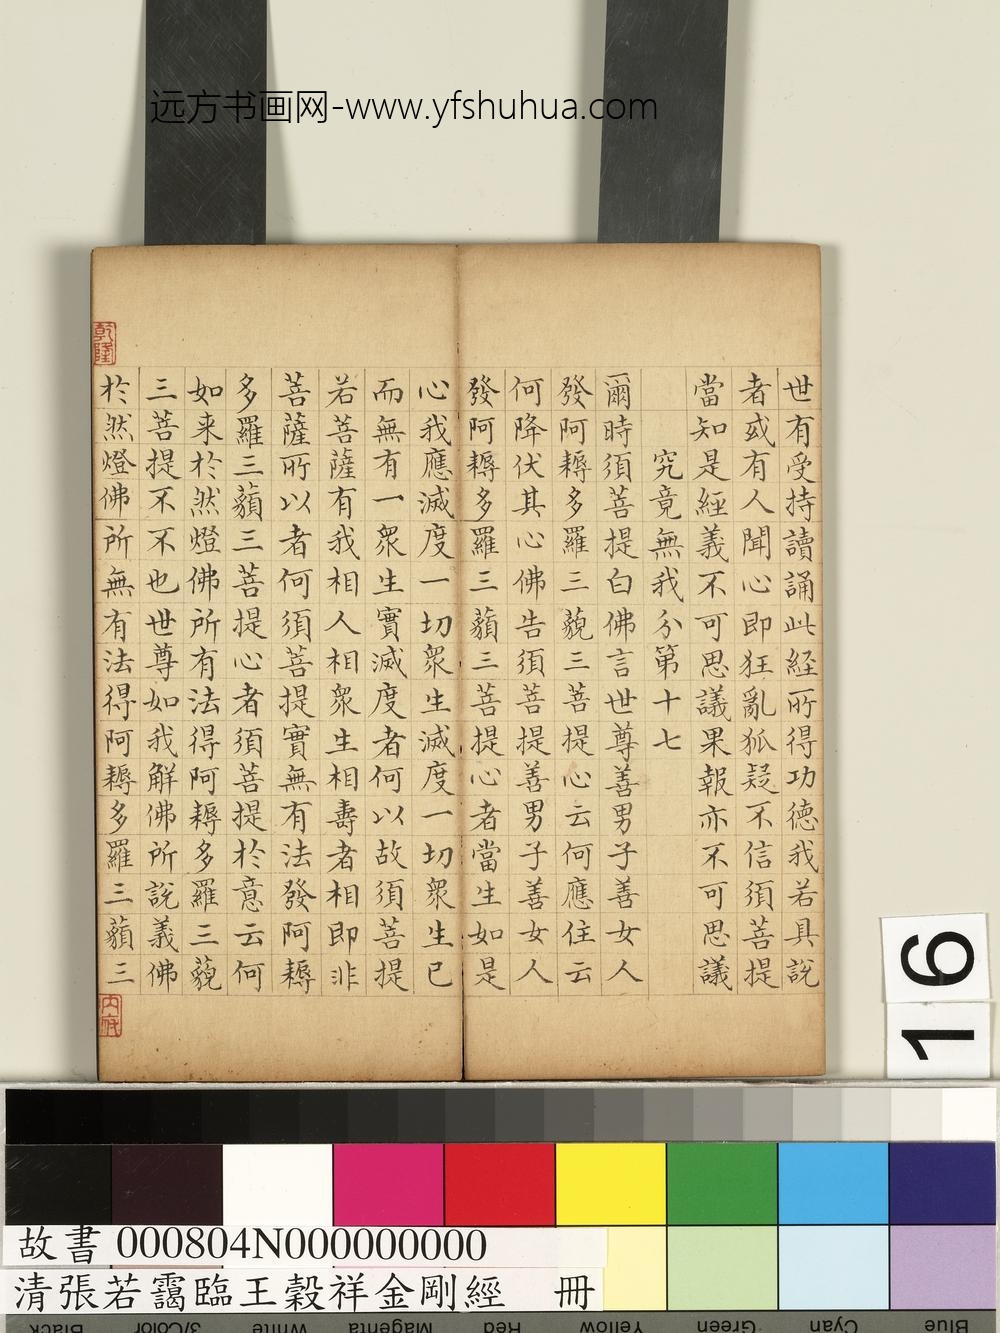 远方书画网-www.yfshuhua.com
世有受持讀誦此経所得功德我若具說
者或有人聞心即狂亂狐疑不信須菩提
當知是經義不可思議果報亦不可思議
究竟無我分第十七
爾時須菩提白佛言世尊善男子善女人
發阿耨多羅三藐三菩提心云何應住云
何降伏其心佛告須菩提善男子善女人
發阿耨多羅三藐三菩提心者當生如是
心我應滅度一切衆生滅度一切衆生已
而無有一衆生實滅度者何以故須菩提
若菩薩有我相人相衆生相壽者相即非
菩薩所以者何須菩提實無有法發阿耨
多羅三藐三菩提心者須菩提於意云何
如来於然燈佛所有法得阿耨多羅三藐
三菩提不不也世尊如我解佛所說義佛
於然燈佛所無有法得阿耨多羅三藐三
乾隆
內府
16
故書 000804N000000000
清張若靄臨王穀祥金剛經 冊
Black 3/Color White Magenta Red Yellow Green Cyan Blue